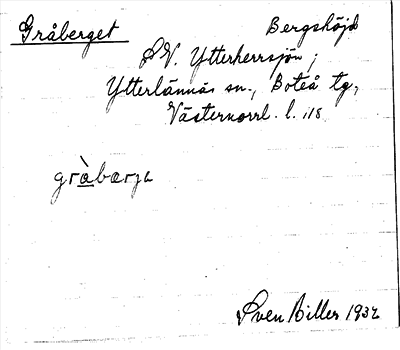 Gråberget Bergshöjd
S.V. Ytterherrsjön;
Ytterlännäs sn., Boteå tg,
Västernorrl. l. 118
gràbærja
Sven Billes 1932